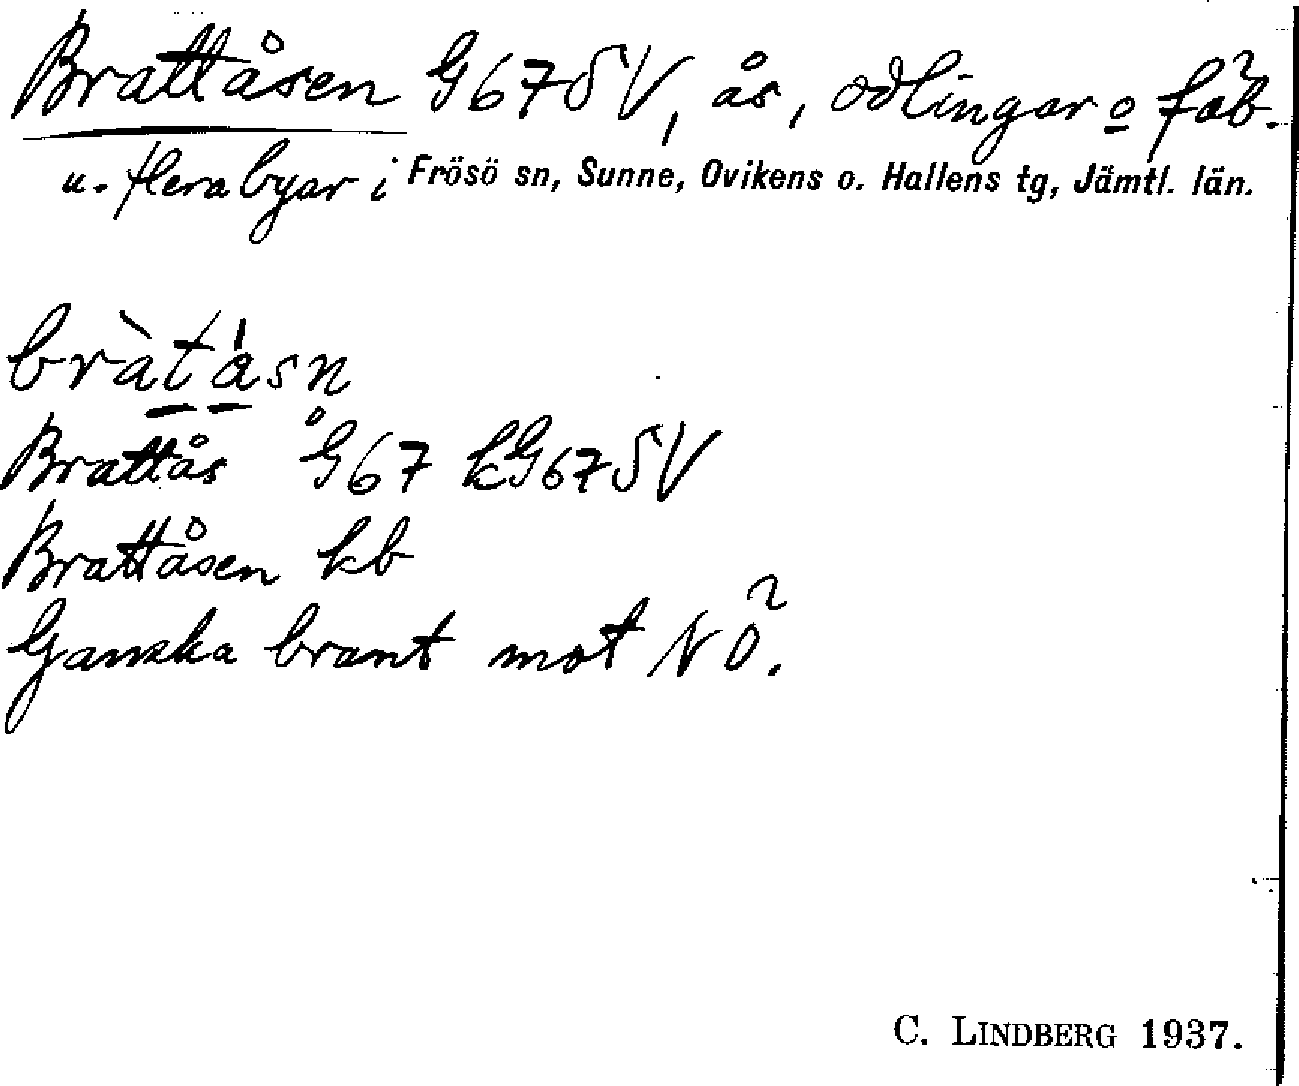 Brattåsen G67SV, ås, odlingar o fäb.
u. flera byar i Frösö sn, Sunne, Ovikens o. Hallens tg, Jämtl. län.
bràtásn
Brattås G67 kG67SV
Brattåsen kb
Ganska brant mot NÖ.
C. LINDBERG 1937.